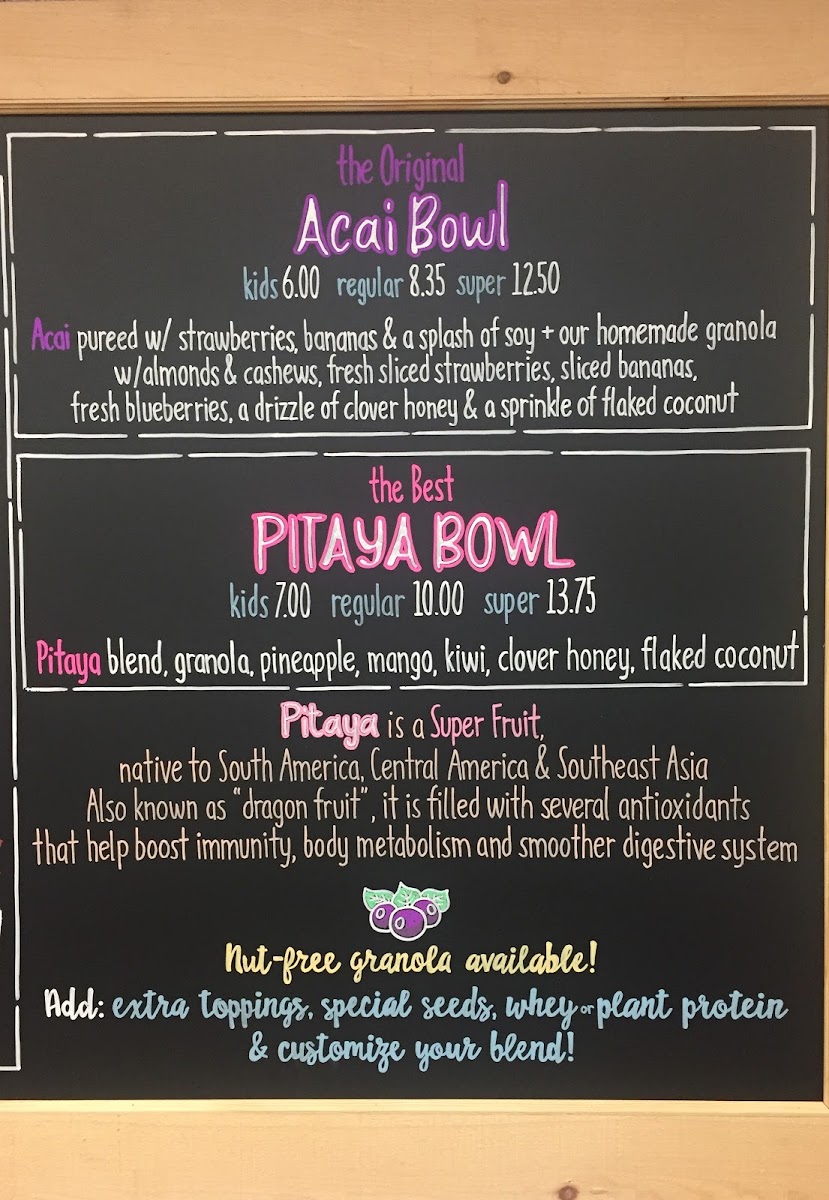 the Original
Acai Bowl
kids 6.00 regular 8.35 super 12.50
Acai pureed w/ strawberries, bananas & a splash of soy + our homemade granola
w/almonds & cashews, fresh sliced strawberries, sliced bananas,
fresh blueberries, a drizzle of clover honey & a sprinkle of flaked coconut
the Best
PITAYA BOWL
kids 7.00 regular 10.00 super 13.75
Pitaya blend, granola, pineapple, mango, kiwi, clover honey, flaked coconut
Pitaya is a Super Fruit,
native to South America, Central America & Southeast Asia
Also known as "dragon fruit", it is filled with several antioxidants
that help boost immunity, body metabolism and smoother digestive system
Nut-free granola available!
Add: extra toppings, special seeds, whey or plant protein
& customize your blend!